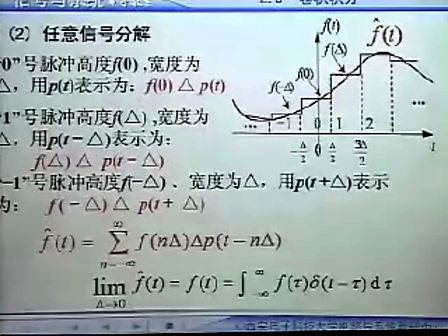 (2) 任意信号分解
"0"号脉冲高度f(0) ,宽度为
△，用p(t)表示为: f(0) △ p(t)
"1"号脉冲高度f(△)，宽度为
△，用p(t－△)表示为:
f(△) △ p(t－△)
"－1"号脉冲高度f(－△) 、宽度为△，用p(t＋△)表示
为: f (－△) △ p(t＋△)
f̂ (t) = ∑_{n=-∞}^{∞} f(nΔ)Δp(t－nΔ)
lim_{Δ→0} f̂(t) = f(t) = ∫_{-∞}^{∞} f(τ)δ(t－τ) dτ
f(t)
f̂(t)
f(△)
f(0)
f(-△)
... －1 0 1 2 ...
-Δ/2 0 Δ/2 3Δ/2 t